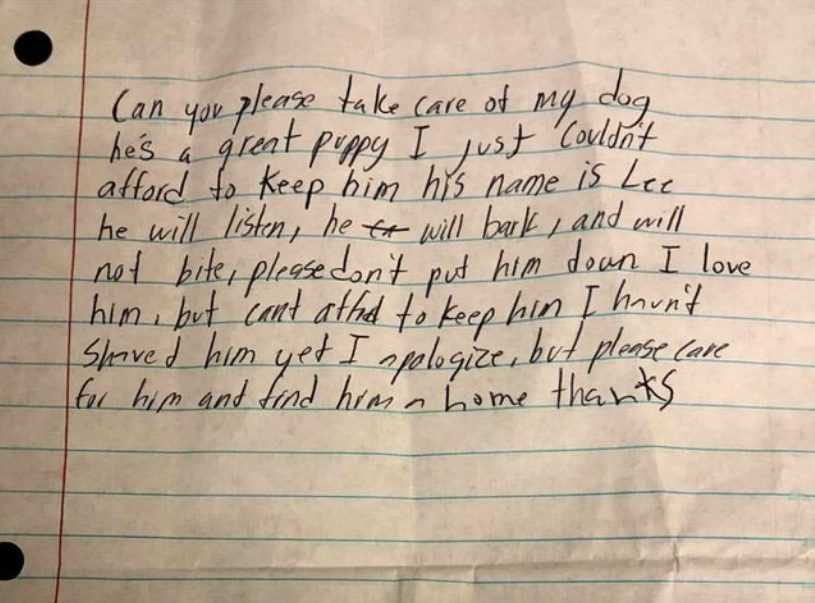 Can you please take care of my dog
he's a great puppy I just couldn't
afford to keep him his name is Lee
he will listen, he will bark, and will
not bite, please don't put him down I love
him, but cant affod to keep him I havn't
Shaved him yet I apologize, but please care
for him and find him a home thanks